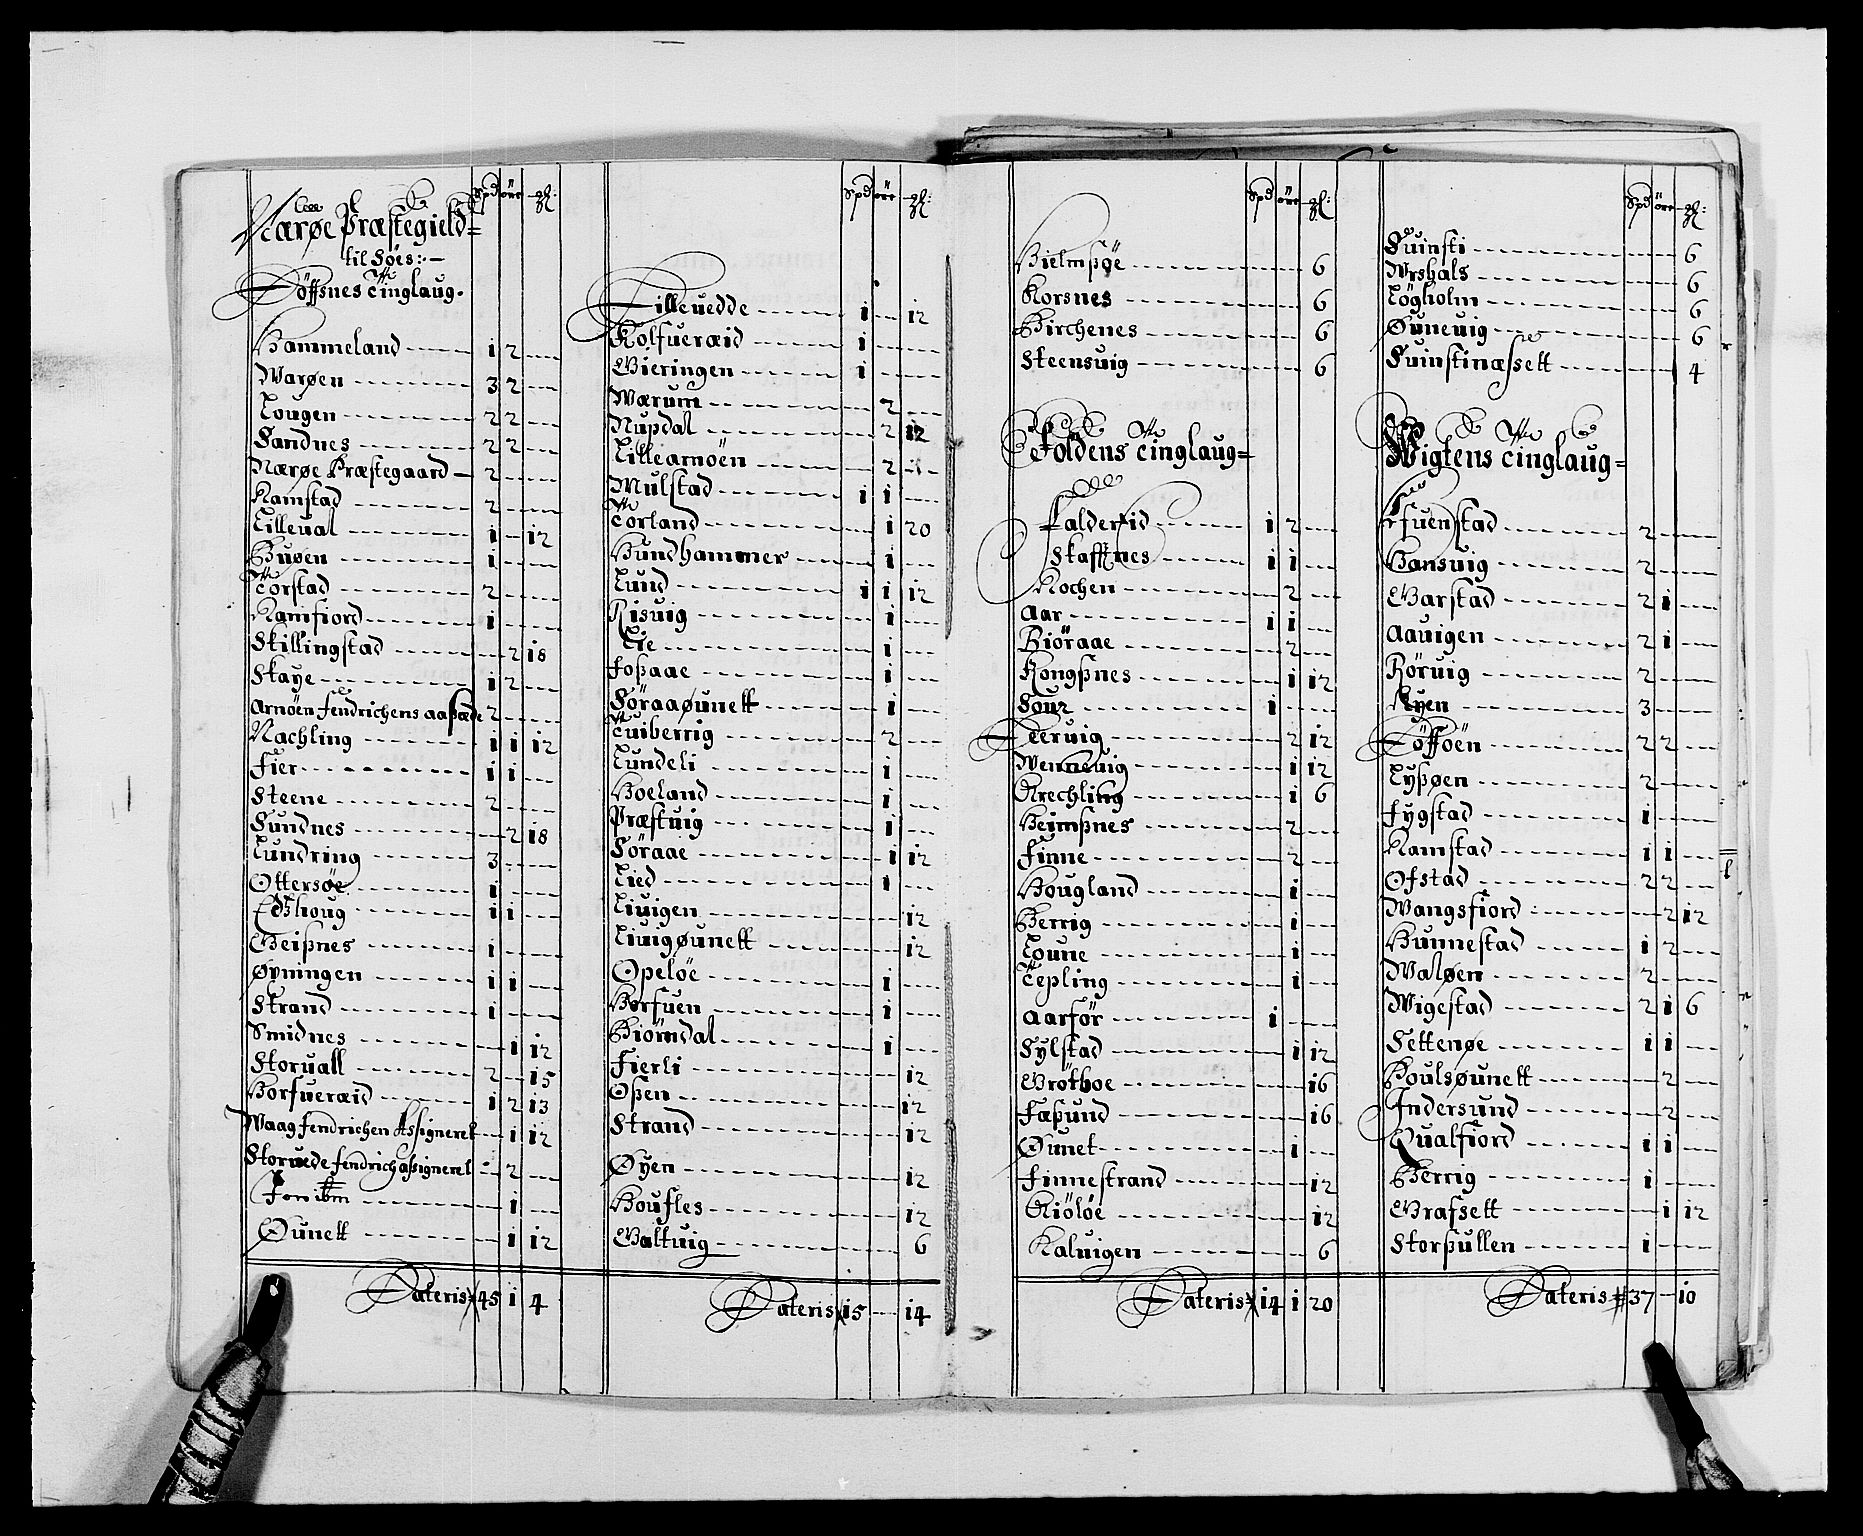 Spd øre gl:
Nærøe Præstegield=
til Søes:-
Döffsnes Tinglaug.
Hammeland 1 2
Warøen 3 2
Lougen 2 2
Sandnes 2 2
Nærøe Præstegaard 2
Ramstad 2
Lilleual 1 12
Buøen 1
Torstad 2
Ramfiord 1
Skillingstad 2 18
Skaye 1 2
Arnöen fendrichens aasæde 2
Nachling 1 1 12
Fier 1 1
Steene 2
Sundnes 2 18
Lundring 3
Ottersøe 1
Edshoug 1 1
Geissnes 1
Øvningen 1 1
Strand 1
Smidnes 1 12
Storuall 2 15
Horfueræid 1 2 13
Waag fendrichen Assigneret 1 12
Storuede fendrich assigneret 2
Jon ibm 1
Øunett 1 12
Lateris 45 1 4
Spd øre gl:
Lilleuedde 1 12
Kolfueræid 1
Gieringen 1
Wærum 2
Nupdal 2 12
Lillearnöen 2
Mulstad 1 1
Torland 1 20
Hundhammer 1
Lund 1 1 12
Risuig 1
Lie 1
Fossaae 1
Söraaøunett 1
Tuiberrig 2
Lundeli 1
Hoeland 1
Præstuig 1
Söraae 1 12
Lied 1
Liuigen 12
Liuigøunett 12
Opelöe 1
Horfuen 1
Biörndal 1
Fierli 12
Ossen 12
Strand 12
Øyen 12
Houfles 12
Galtuig 6
Lateris 15 14
Spd øre gl:
Hielmssøe 6
Korsnes 6
Birchenes 6
Steensuig 6
Földens Tinglaug=
Faldereid 1 2
Skaffnes 1 1
Kochen 2
Aar 1 1
Biöraae 2
Kongssnes 1 12
Sour 1
Teeruig 2 12
Wenneuig 1 12
Krechling 1 6
Heimssnes 2
Finne 2
Hougland 1
Berrig 1
Loune 1
Tepling 1
Aarför 1
Sylstad 1 12
Grötboe 16
Fæssund 16
Øunet 1
Finnestrand 12
Kiölöe 12
Kaluigen 6
Lateris 14 1 20
Spd øre gl:
Suinsti 6
Wrshals 6
Lögholm 6
Øuneuig 6
Suinstinæssett 4
Wigtens Tinglaug=
Fuenstad 2
Hansuig 2
Garstad 2 1
Aauigen 2 1
Röruig 2
Ryen 3
Döffoën 2 2
Lyssøen 2
Fygstad 1
Ramstad 1 1
Ofstad 2 2
Wangsfiord 2 12
Hunnestad 1 2
Waløen 2
Wigestad 2 1 6
Settenøe 1 1
Houlsøunett 2
Indersund 2
Qualfiord 1 1
Berrig 1
Grafsett 1 12
Storssullen 1
Lateris 37 10